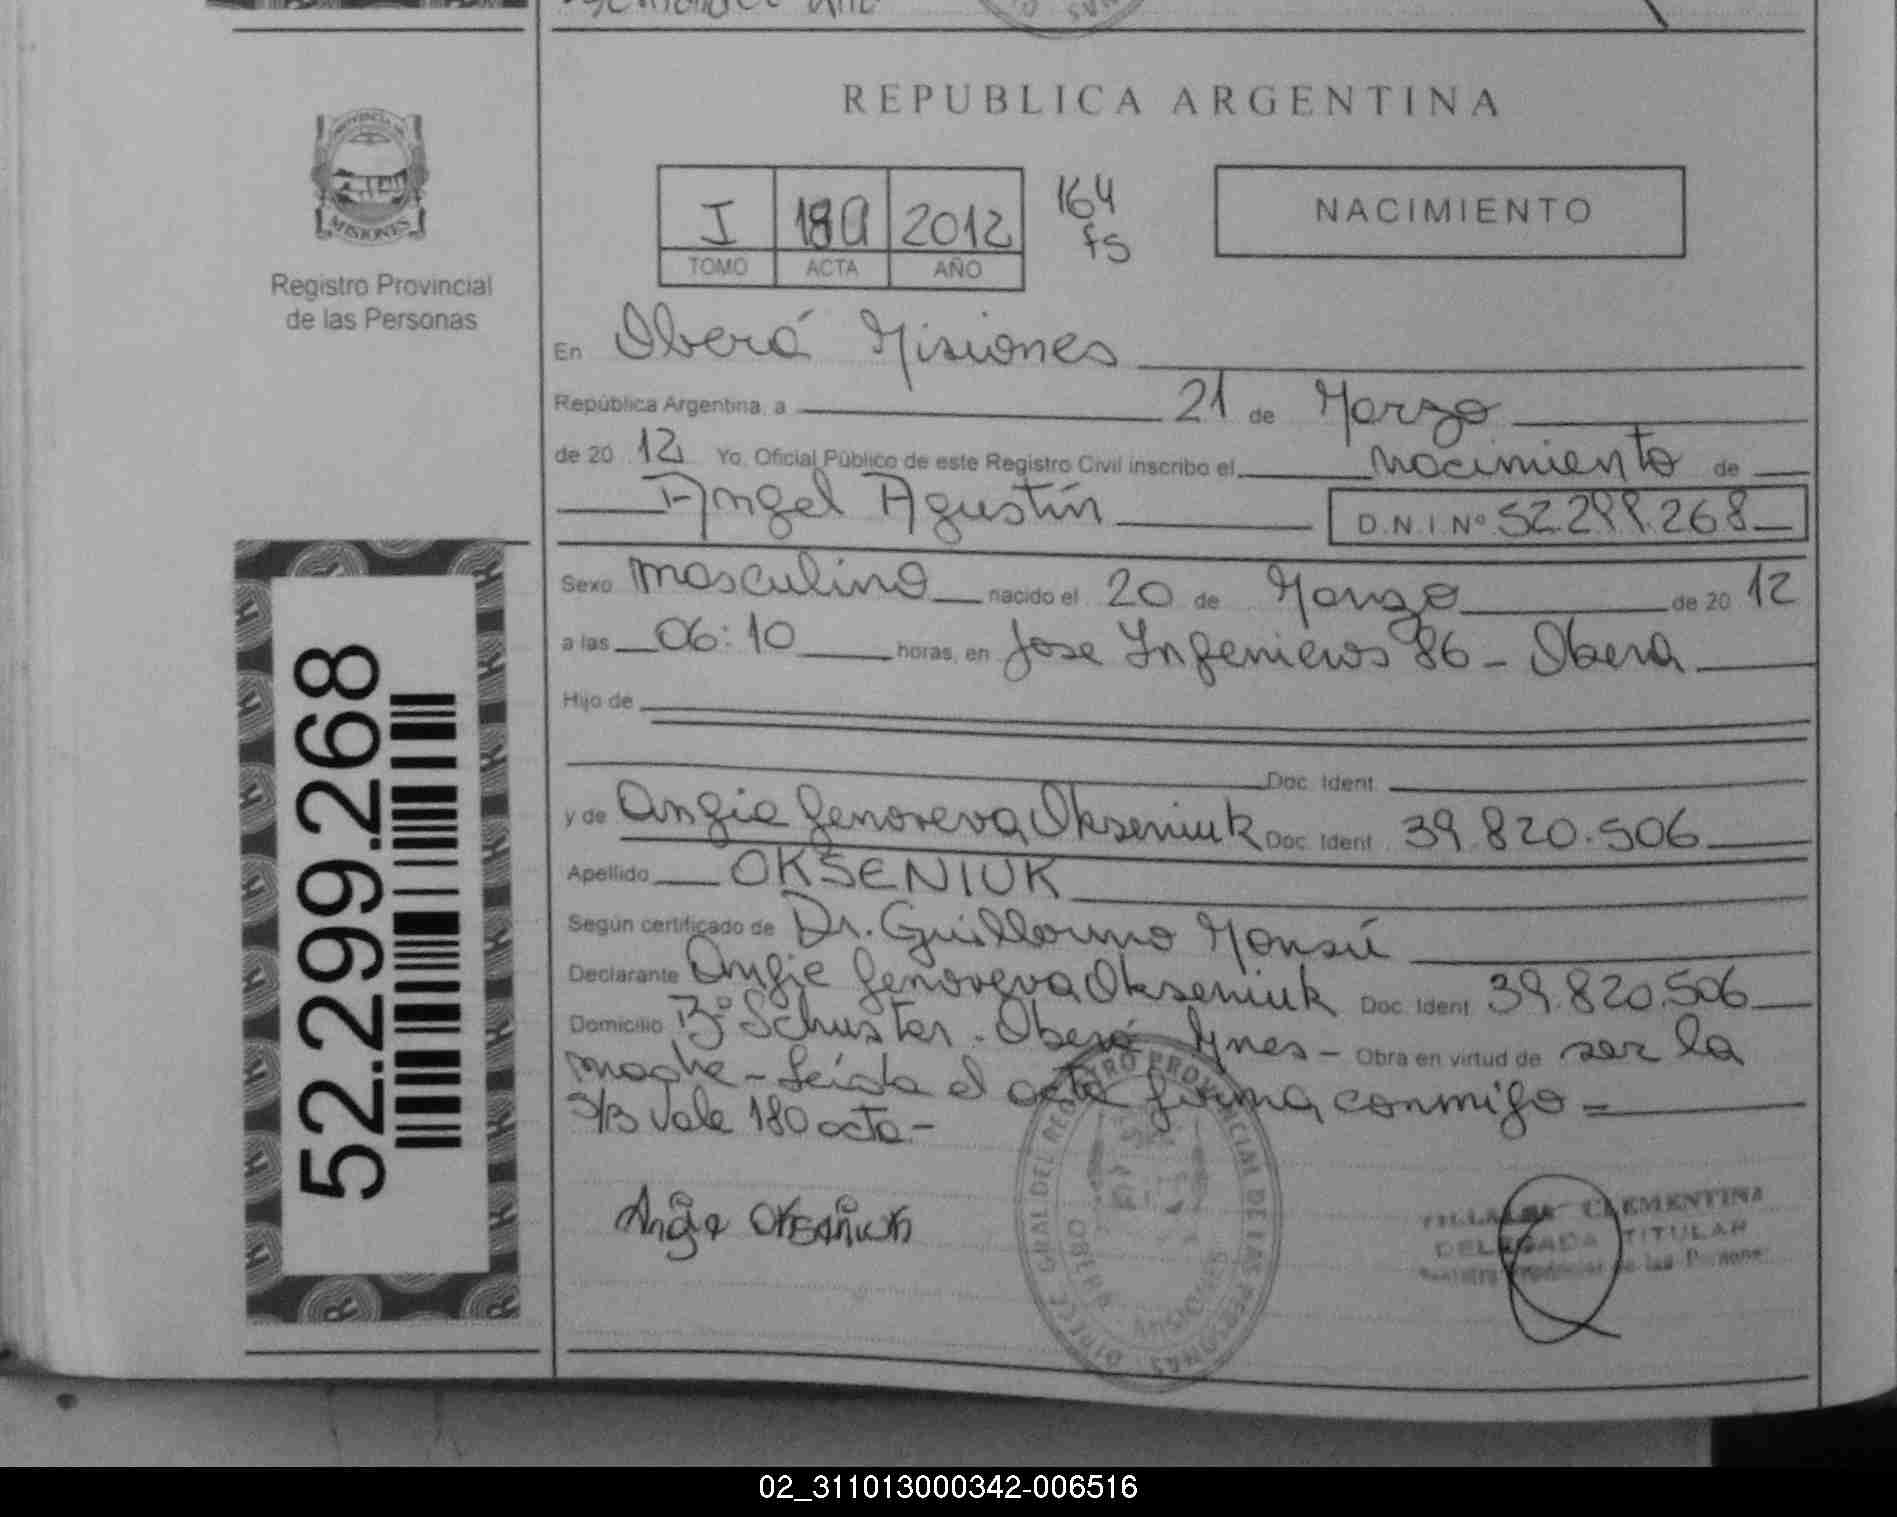 REPUBLICA ARGENTINA
PROVINCIA DE
MISIONES
Registro Provincial
de las Personas
I 180 2012
TOMO ACTA AÑO
164
fs
NACIMIENTO
En Oberá Misiones
República Argentina, a 21 de Marzo
de 20 12 Yo, Oficial Público de este Registro Civil inscribo el nacimiento de
Angel Agustín D.N.I Nº 52.299.268
Sexo masculino nacido el 20 de Marzo de 20 12
a las 06:10 horas, en Jose Ingenieros 86 - Obera
Hijo de
Doc. Ident.
y de Angie Genoveva Okseniuk Doc. Ident. 39.820.506
Apellido OKSENIUK
Según certificado de Dr. Guillermo Monsú
Declarante Angie Genoveva Okseniuk Doc. Ident. 39.820.506
Domicilio Bº Schuster - Oberá Mnes - Obra en virtud de ser la
madre - Leída el acta firma conmigo =
S/B Vale 180 acta.-
Angie Okseniuk
CLEMENTINA
DELEGADA TITULAR
Registro Provincial de las Personas
DIRECC. GRAL DEL REGISTRO PROVINCIAL DE LAS PERSONAS
OBERA
MISIONES
52.299.268
02_311013000342-006516